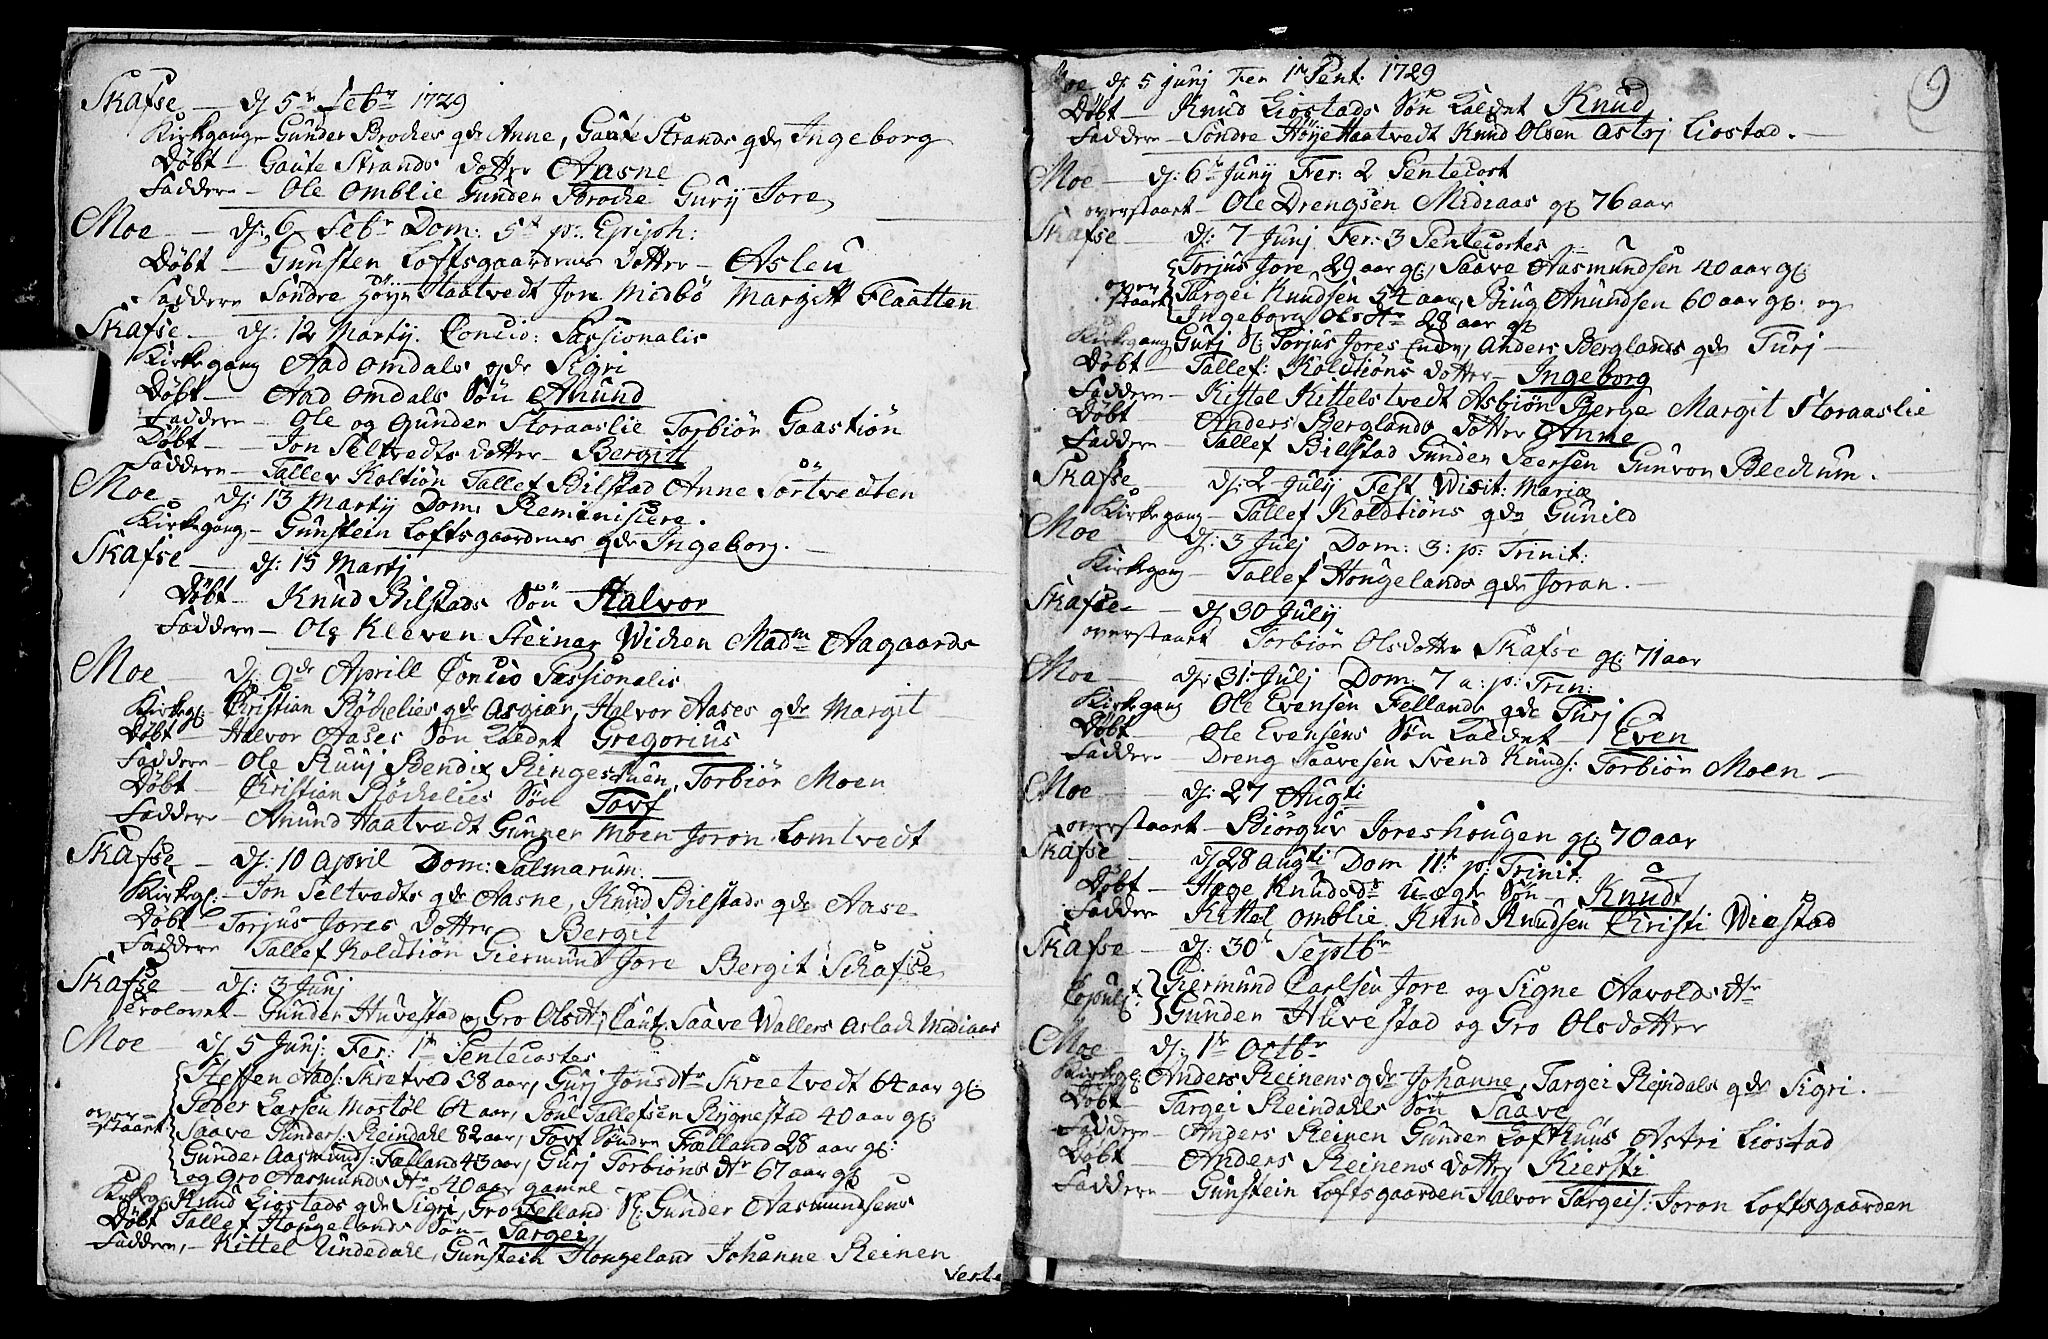 Skafse — dj 5te Febr 1729
Kirkegang Gunder Broches qde Anne, Gaute Strands qde Ingeborg
Døbt — Gaute Strands dotter Aasne
Faddere — Ole Omblie Gunder Broche Gurij Jore
Moe — dj: 6 Febr Dom: 5te p: Epiph:
Døbt — Gunsten Loftsgaardens dotter — Asleu
Faddere Søndre Høye Haatvedt Jore Midbö Margitt Flaatten
Skafse — dj: 12 Martij Concio: Passionalis
Kirkegang Aad Omdals qde Sigri
Døbt — Aad Omdals Søn Anund
Faddere — Ole og Gunder Storaaslie Torbiör Gaastiön
Døbt — Jon Seltvedts dotter — Bergit
Faddere — Tallev Koltiön Tallef Bilstad Anne Sörtvedten
Moe — dj: 13 Martij Dom: Reminiscere.
Kirkegang — Gunstein Loftsgaardens qde Ingeborg. —
Skafse — dj: 15 Martj
Døbt — Knud Bilstads Søn Halvor
Faddere — Ole Kleven Steinar Wichen Madm Aagaards
Moe — dj: 9de Aprill Concio Passionalis
Kirkeg: Christian Röchelies qde Asgier, Halvor Aases qde Margit
Døbt — Halvor Aases Søn Kaldet Gregorius
Faddere — Ole Ruuj Bendix Ringestuen, Torbiör Moen
Døbt — Christian Röchelies Søn Torf
Faddere — Anund Haatvedt Gunner Moen Joron Lomtvedt
Skafse — dj: 10 April Dom: Palmarum. —
Kirkeg: — Jon Seltvedts qde Aasne, Knud Bilstads qde Aase
Døbt — Torjus Jores dotter Bergit
Faddere Tallef Koldtiön Giermund Jore Bergit Schafse
Skafse — dj: 3 Junj
Trolovet — Gunder Huvestad og Gro Olsdt, Caut: Saave Wallers Aslach Midiaas
Moe — dj 5 Junj: Fer: 1te Pentecostes
Steffen Aads: Skretved 38 aar, Gurj Jonsdtr Skreetvedt 64 aar gl:
Peder Larsen Mostöl 64 aar, Poul Tallefsen Rygnestad 40 aar gl:
over-
staart Saave Gunders: Reindahl 82 aar, Torf Söndre Frælland 28 aar gl:
Gunder Aasmunds: Fælland 43 aar, Gurj Torbiöns dtr 67 aar gl:
og Gro Aasmunds dtr 40 aar gamel
Kirkeg: Knud Liostads qde Sigri, Gro Felland Sl: Gunder Aasmundsens
Døbt Tallef Hougelands Søn Targei
Faddere, — Kittel Undedahl, Gunstein Hougeland Johanne Reinen
Moe dj 5 junj Fer 1te Pent. 1729
9
Døbt — Knud Liostads Søn Kaldet Knud
Faddere — Söndre Höye Haatvedt Knud Olsen Astrj Liostad. —
Moe — dj: 6te Junij Fer: 2 Pentecost
overstaart — Ole Drengsen Midiaas gl: 76 aar
Skafse — dj: 7 Junj Fer: 3 Pentecostes
Torjus Jore 29 aar gl, Saave Aasmundsen 40 aar gl:
over
staart Targei Knudsen 54 aar, Biug Anundsen 60 aar gl: og
Ingeborg Olsdtr 28 aar gl
Kirkegang Gurj Sl: Torjus Jores Encke, Anders Berglands qde Turj —
Døbt — Tallef: Koldtiöns dotter — Ingeborg
Faddere — Kittel Kittelstvedt Asbiön Berge Margit Storaaslie
Døbt — Anders Berglands dotter Anne
Faddere — Tallef Bilstad Gunder Peersen Gunvor Bleckum.
Skafse — dj: 2 Julij Fest Wisit: Mariæ
Kirkegang — Tallef Koldtiöns qde Gunild
Moe — dj: 3 Julj Dom: 3: p: Trinit:
Kirkegang — Tallef Hougelands qde Joran. —
Skafse — dj 30 Julij
overstaart Torbiör Olsdotter Skafse gl: 71 aar
Moe — dj: 31 Julj Dom: 7 a: p: Trin:
Kirkegang Ole Evensen Fellands qde Turj
Døbt — Ole Evensens Søn Kaldet Even
Faddere — Dreng Saavesen Svend Knuds: Torbiör Moen —
Moe — dj: 27 Augti
overstaart — Biörguv Joreshougen gl: 70 aar
Skafse — dj 28 Augti Dom 11te p: Trinit:
Døbt — Hæge Knudsdr Uægte Søn — Knudt
Faddere Kittel Omblie Knud Knudsen Christi Wiestad
Skafse — dj: 30te Septbr
Copul: Giermund Carlsen Jore og Signe Aavolds dtr
Gunder Huvestad og Gro Olsdotter
Moe — dj: 1te Octbr
Kirkeg: Anders Reinens qde Johanne, Targei Reindals qde Sigri. —
Døbt — Targei Reindahls Søn Saave
Faddere — Anders Reinen Gunder Loftkuus Astri Liostad
Døbt — Anders Reinens dotter Kiersti
Faddere — Gunstein Loftsgaarden Halvor Targeis: Joron Loftsgaarden